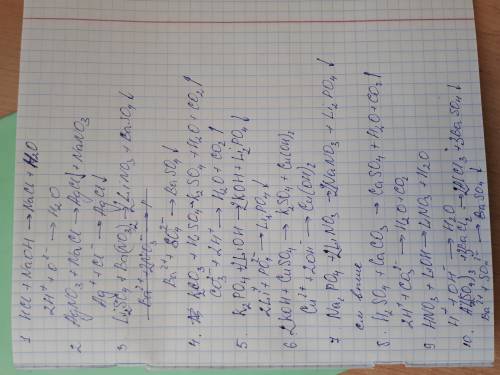 1 HCl + NaOH → NaCl + H2O
2H⁺ + O²⁻ → H2O
2 AgNO3 + NaCl → AgCl↓ + NaNO3
Ag⁺ + Cl⁻ → AgCl↓
3 Li2SO4 + Ba(NO3)2 → 2LiNO3 + BaSO4↓
Ba²⁺ + SO4²⁻ → BaSO4↓
4. K2CO3 + H2SO4 → K2SO4 + H2O + CO2↑
CO3²⁻ + 2H⁺ → H2O + CO2↑
5. K2PO4 + LiOH → 2KOH + Li2PO4↓
2Li + PO4²⁻ → Li2PO4↓
6 2KOH + CuSO4 → K2SO4 + Cu(OH)2
Cu²⁺ + 2OH⁻ → Cu(OH)2
7 Na2PO4 + 2LiNO3 → 2NaNO3 + Li2PO4↓
см выше
8. H2SO4 + CaCO3 → CaSO4 + H2O + CO2↑
2H⁺ + CO3²⁻ → H2O + CO2
9 HNO3 + LiOH → LiNO3 + H2O
H⁺ + OH⁻ → H2O
10. Al2(SO4)3 + 3BaCl2 → 2AlCl3 + 3BaSO4↓
Ba²⁺ + SO4²⁻ → BaSO4↓